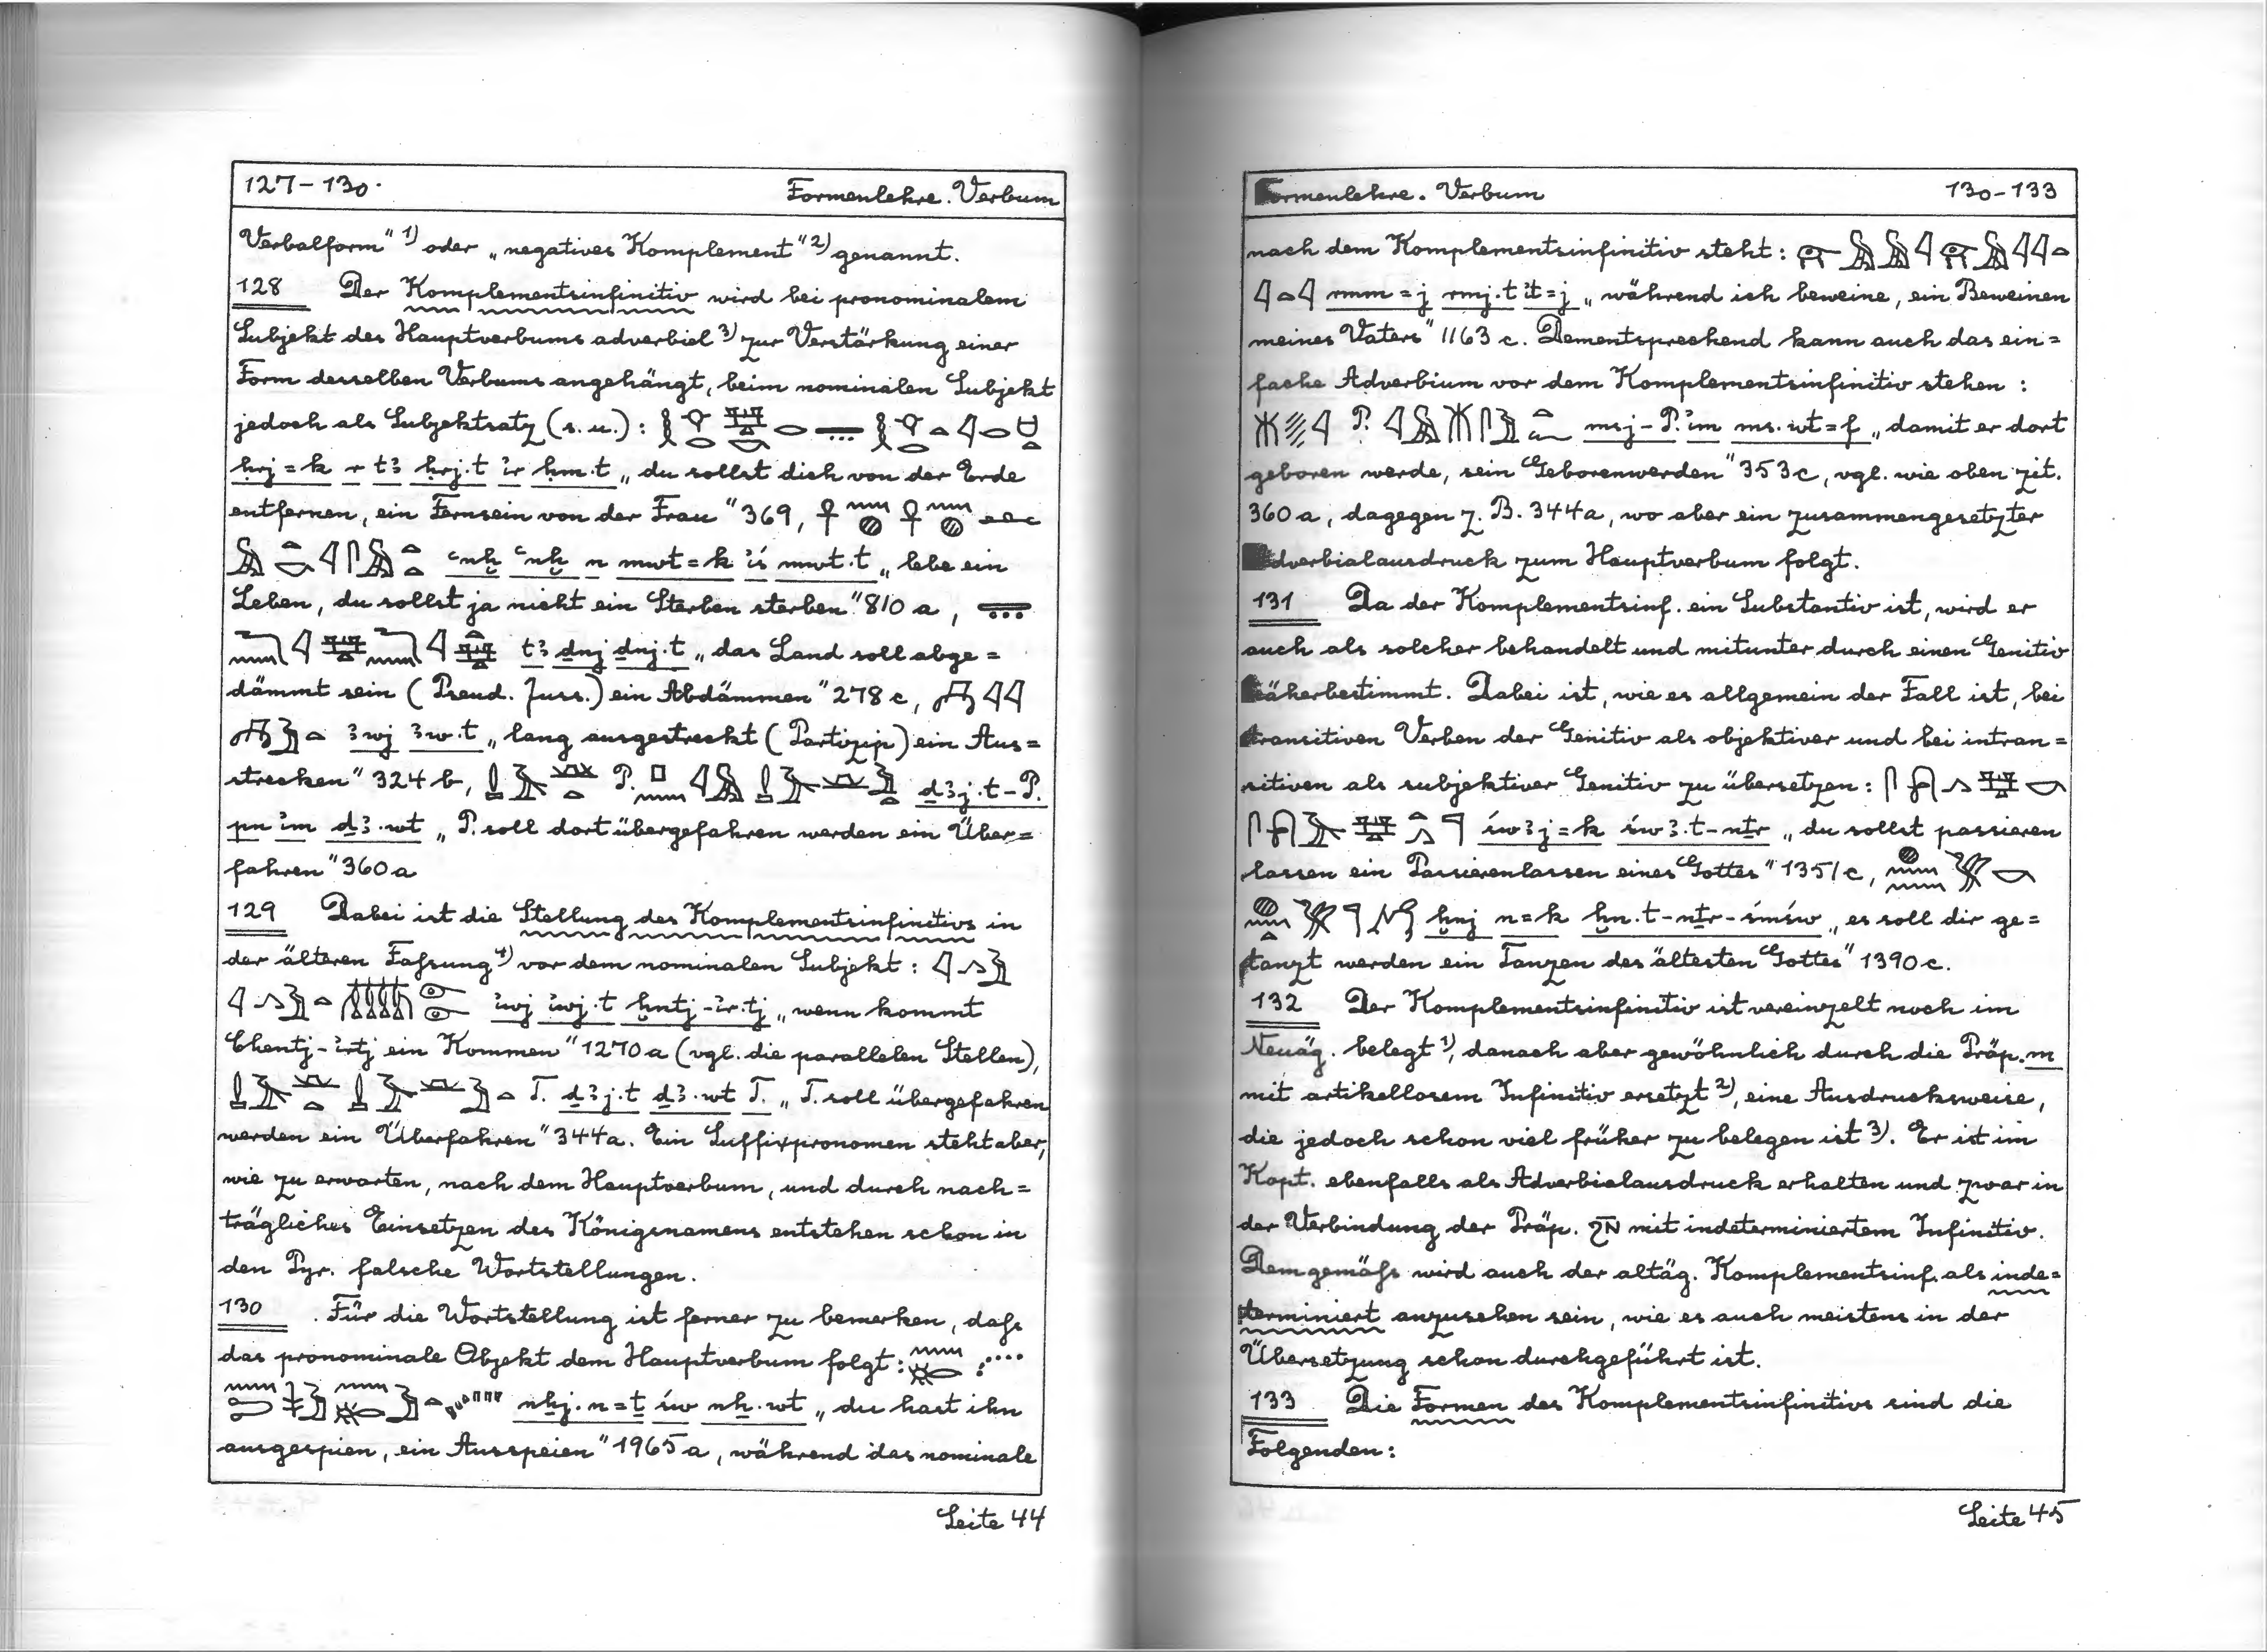 127-130. Formenlehre. Verbum
Verbalform" 1) oder „negatives Komplement" 2) genannt.
128 Der Komplementsinfinitiv wird bei pronominalem
Subjekt des Hauptverbums adverbiel 3) zur Verstärkung einer
Form desselben Verbums angehängt, beim nominalen Subjekt
jedoch als Subjektsatz (s. u.):
ḥrj=k r tꜣ ḥrj.t ı͗r ḥm.t „du sollst dich von der Erde
entfernen, ein Fernsein von der Frau" 369,
ꜥnḫ ꜥnḫ n mwt=k ı͗ś mwt.t „lebe ein
Leben, du sollst ja nicht ein Sterben sterben" 810 a,
tꜣ dnj dnj.t „das Land soll abge=
dämmt sein (Pseud. Juss.) ein Abdämmen" 278 c,
ꜣwj ꜣw.t „lang ausgestreckt (Partizip) ein Aus=
strecken" 324 b, P. ḏꜣj.t-P.
pn ı͗m ḏꜣ.wt „P. soll dort übergefahren werden ein Über=
fahren" 360 a
129 Dabei ist die Stellung des Komplementsinfinitivs in
der älteren Faſsung 4) vor dem nominalen Subjekt:
ı͗wj ı͗wj.t ḫntj-ı͗r.tj „wenn kommt
Chentj-ı͗rtj ein Kommen" 1270 a (vgl. die parallelen Stellen),
T. ḏꜣj.t ḏꜣ.wt T. „T. soll übergefahren
werden ein Überfahren" 344a. Ein Suffixpronomen steht aber,
wie zu erwarten, nach dem Hauptverbum, und durch nach=
trägliches Einsetzen des Königsnamens entstehen schon in
den Pyr. falsche Wortstellungen.
130 Für die Wortstellung ist ferner zu bemerken, daſs
das pronominale Objekt dem Hauptverbum folgt:
nẖj.n=ṯ św nẖ.wt „du hast ihn
ausgespien, ein Ausspeien" 1965 a, während das nominale
Seite 44
Formenlehre. Verbum 130-133
nach dem Komplementsinfinitiv steht:
rmm=j rmj.t ı͗t=j „während ich beweine, ein Beweinen
meines Vaters" 1163 c. Dementsprechend kann auch das ein=
fache Adverbium vor dem Komplementsinfinitiv stehen:
P. msj-P. ı͗m ms.wt=f „damit er dort
geboren werde, sein Geborenwerden" 353c, vgl. wie oben zit.
360 a, dagegen z. B. 344a, wo aber ein zusammengesetzter
Adverbialausdruck zum Hauptverbum folgt.
131 Da der Komplementsinf. ein Substantiv ist, wird er
auch als solcher behandelt und mitunter durch einen Genitiv
näherbestimmt. Dabei ist, wie es allgemein der Fall ist, bei
transitiven Verben der Genitiv als objektiver und bei intran=
sitiven als subjektiver Genitiv zu übersetzen:
św ꜣj=k św ꜣ.t-nṯr „du sollst passieren
lassen ein Passierenlassen eines Gottes" 1351 c,
ḫnj n=k ḫn.t-nṯr-śmśw „es soll dir ge=
tanzt werden ein Tanzen des ältesten Gottes" 1390 c.
132 Der Komplementsinfinitiv ist vereinzelt noch im
Neuäg. belegt 1), danach aber gewöhnlich durch die Präp. m
mit artikellosem Infinitiv ersetzt 2), eine Ausdrucksweise,
die jedoch schon viel früher zu belegen ist 3). Er ist im
Kopt. ebenfalls als Adverbialausdruck erhalten und zwar in
der Verbindung der Präp. ϨN̄ mit indeterminiertem Infinitiv.
Demgemäſs wird auch der altäg. Komplementsinf. als inde=
terminiert anzusehen sein, wie es auch meistens in der
Übersetzung schon durchgeführt ist.
133 Die Formen des Komplementsinfinitivs sind die
Folgenden:
Seite 45